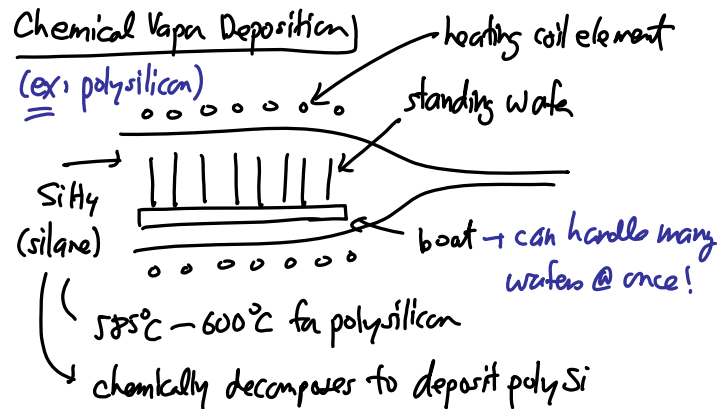 Chemical Vapor Deposition
(ex: polysilicon)
heating coil element
standing wafer
SiH4
(silane)
boat → can handle many
wafers @ once!
585°C – 600°C for polysilicon
chemically decomposes to deposit poly Si